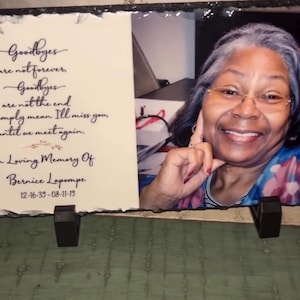 Goodbyes
are not forever,
Goodbyes
are not the end
simply mean I'll miss you
until we meet again.
In Loving Memory Of
Bernice Lapompe
12-16-39 - 08-11-19